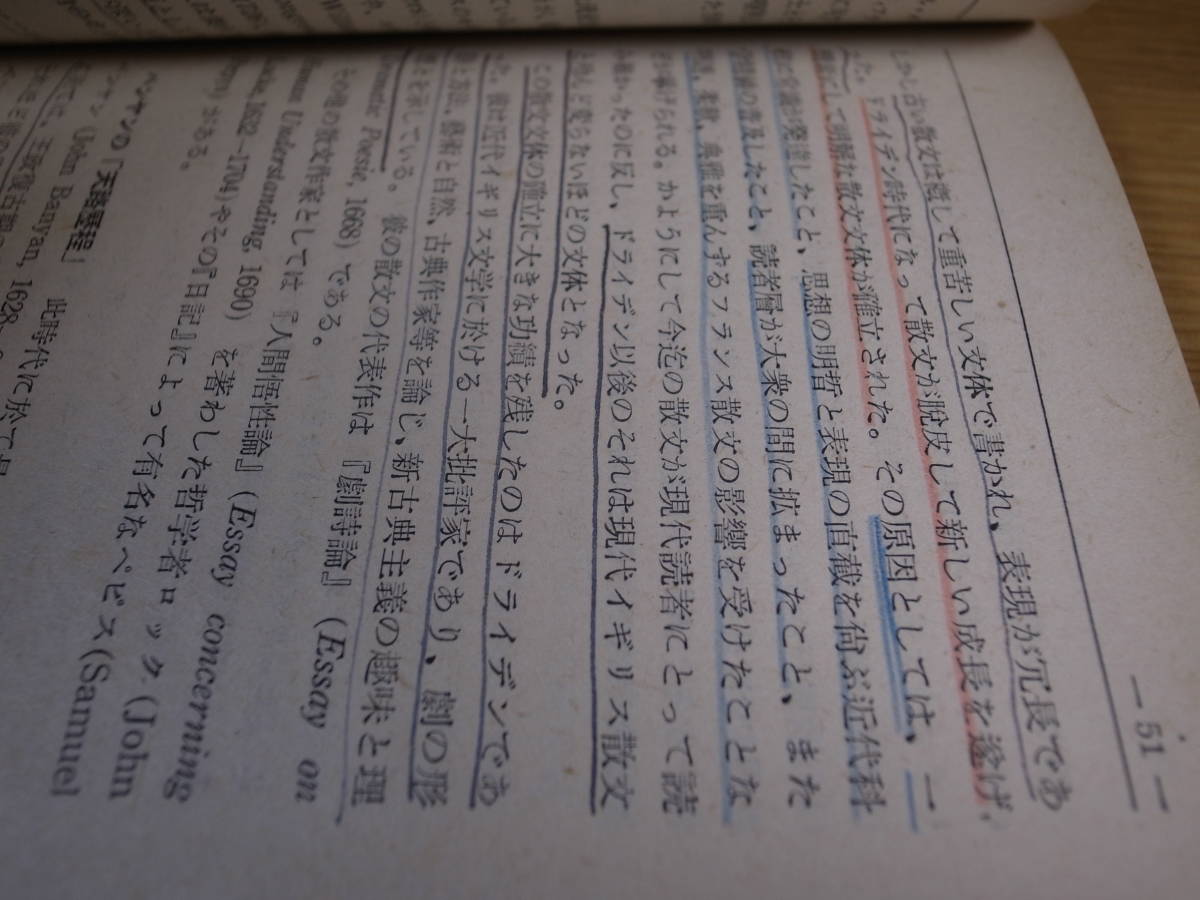 — 51 —
しかし古い散文は概して重苦しい文体で書かれ、表現が冗長であ
った。ドライデン時代になって散文が脱皮して新しい成長を遂げ、
明解な散文文体が確立された。その原因としては、一
学が発達したこと、思想の明晢と表現の直截を尚ぶ近代科
の普及したこと、読者層が大衆の間に拡まったこと、また
典雅を重んするフランス散文の影響を受けたことな
が挙げられる。かようにして今迄の散文が現代読者にとって読
み難かったのに反し、ドライデン以後のそれは現代イギリス散文
と殆んど変らないほどの文体となった。
この散文文体の確立に大きな功績を残したのはドライデンであ
った。彼は近代イギリス文学に於ける一大批評家であり、劇の形
と方法、藝術と自然、古典作家等を論じ、新古典主義の趣味と理
を示している。彼の散文の代表作は『劇詩論』(Essay on
Dramatic Poesie, 1668) である。
その他の散文作家としては『人間悟性論』(Essay concerning
Human Understanding, 1690) を著わした哲学者ロック(John
Locke, 1632–1704)やその『日記』によって有名なペピス(Samuel
Pepys) がある。
バンヤンの『天路歴程』 此時代に於て
バンヤン (John Bunyan, 1628
王政復古期の